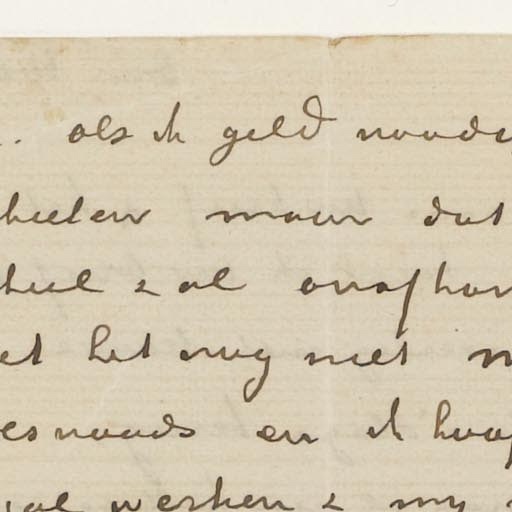 als ik geld noodi
heelen maar dat
heel zal onafhan
et het nog niet
es noods en ik hoop
zal werken & my